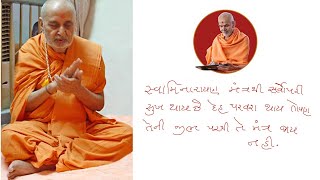 સ્વામિનારાયણ મંત્રથી સર્વોપરી
સુખ થાય છે દેહ પરવશ થાય તોપણ
તેની જીભ પરથી તે મંત્ર જાય
નહી.